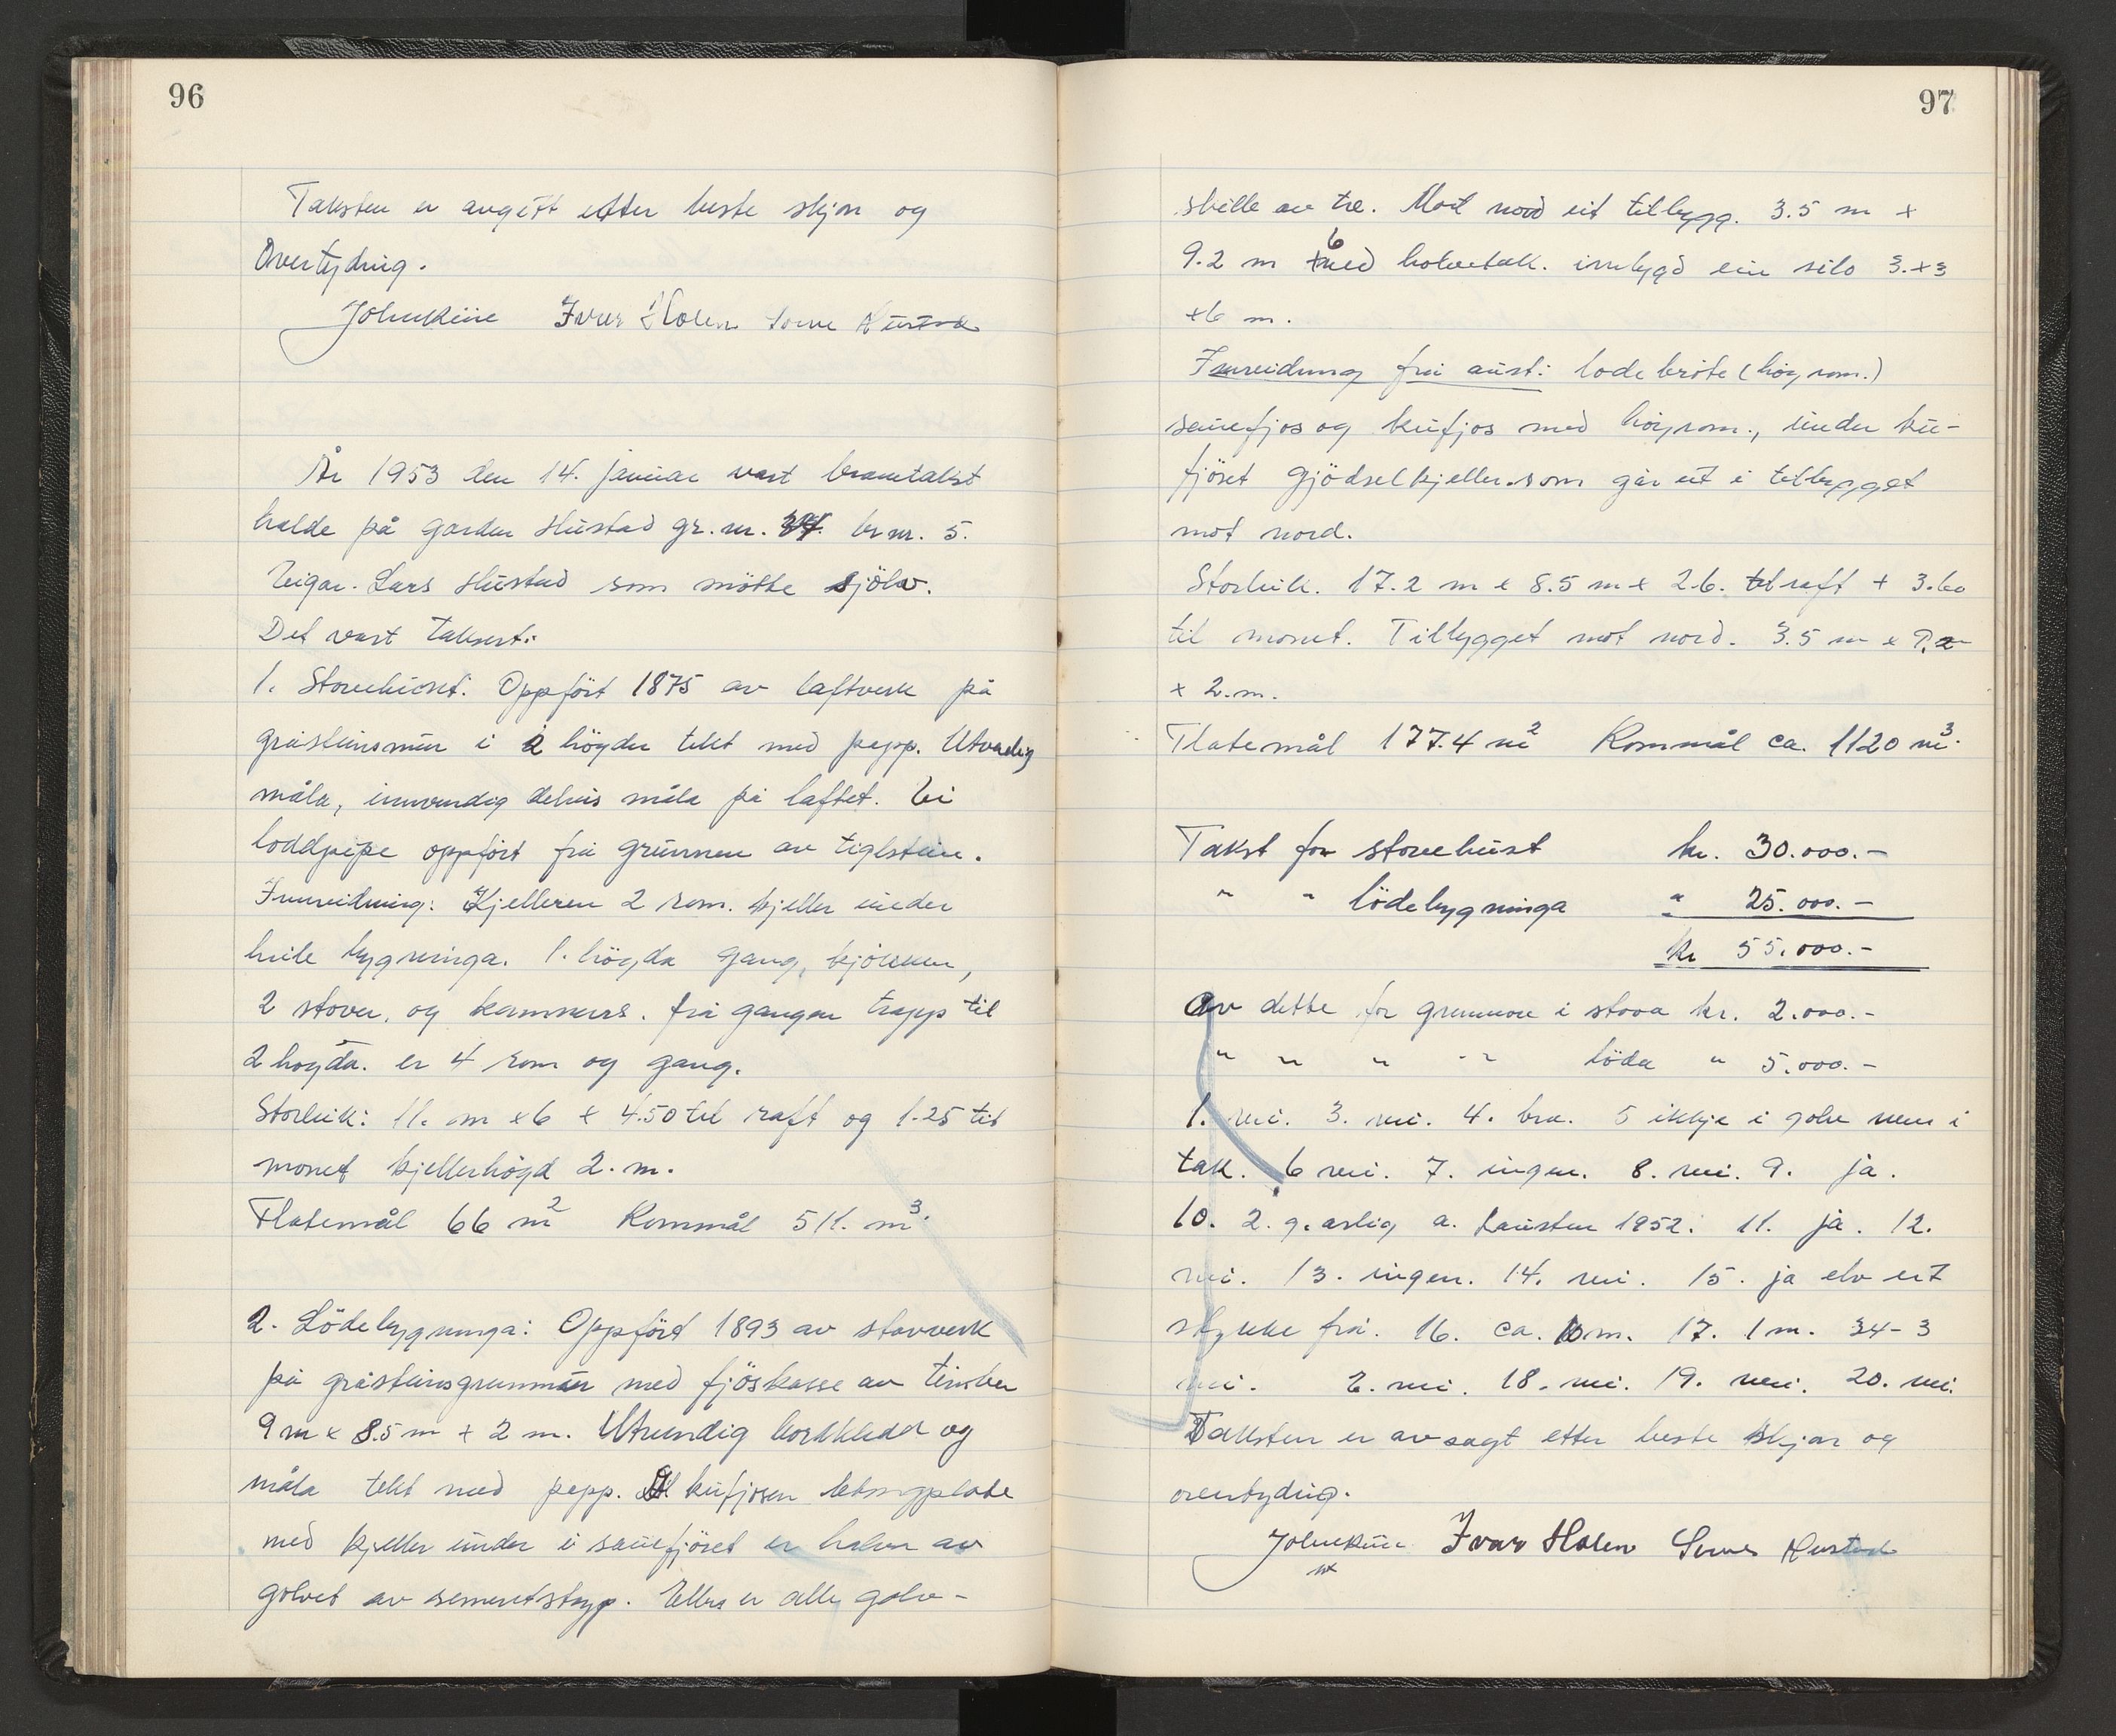 96
Taksten er avgitt etter beste skjøn og
Overtyding.
Ivar Holen
År 1953 den 14. januar vart branntakst
halde på garden Hustad gr. nr. br nr. 5.
Eigar. Lars Hustad som møtte sjölv.
Det vart taksert:
1. Stovehuset. Oppfört 1875 av laftverk på
gråsteinsmur i 2 högder tekt med papp. Utvendig
måla, innvendig delvis måla på laftet. Ei
loddpipe oppfört frå grunnen av tiglstein.
Innreidning: Kjelleren 2 rom. kjeller under
heile bygninga. 1. högda gang, kjöken,
2 stover, og kammers. frå gangen trapp til
2 högda. er 4 rom og gang.
Storleik: 11. m x 6 x 4.50 til raft og 1.25 til
monet kjellerhögd 2. m.
Flatemål 66 m² Rommål 511. m³.
2. Lödebygninga: Oppfört 1893 av stavverk
på gråsteinsgrunnmur med fjöskasse av timber
9 m x 8.5 m x 2 m. Utvendig bordkledd og
måla tekt med papp. kufjosen betongplate
med kjeller under i sauefjöset er halve av
golvet av sementstöyp. Ellers er alle golv-
97
skille av tre. Mot nord eit tilbygg. 3.5 m x
9.2 m med halvtak. innbygd ein silo 3. x 3
x 6 m.
Innreidning frå aust: lode bröte (höyrom.)
sauefjos og kufjos med höyrom., under ku-
fjöset gjödselkjeller som går ut i tilbygget
mot nord.
Storleik. 17.2 m x 8.5 m x 2.6. til raft + 3.60
til monet. Tilbygget mot nord. 3.5 m x 9.2
x 2. m.
Flatemål 177.4 m² Rommål ca. 1120 m³.
Takst for stovehuset kr. 30.000.-
" " lödebygninga " 25.000.-
kr 55.000.-
Av dette for grunnen i stova kr. 2.000.-
" " " " löda " 5.000.-
1. nei. 3. nei. 4. bra. 5 ikkje i golv men i
tak. 6 nei. 7. ingen. 8. nei. 9. ja.
10. 2. g. årlig a. hausten 1952. 11. ja. 12.
nei. 13. ingen. 14. nei. 15. ja elv eit
stykke frå. 16. ca. 10 m. 17. 1 m. 34-3
nei. 2. nei. 18. nei. 19. nei. 20. nei.
Taksten er avsagt etter beste skjön og
overtyding.
Ivar Holen Hustad